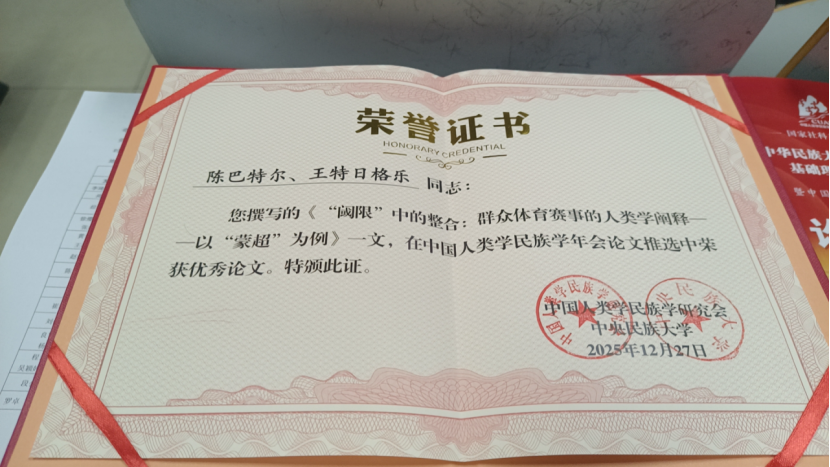 荣誉证书
HONORARY CREDENTIAL
陈巴特尔、王特日格乐 同志：
您撰写的《“阈限”中的整合：群众体育赛事的人类学阐释—
—以“蒙超”为例》一文，在中国人类学民族学年会论文推选中荣
获优秀论文。特颁此证。
中国人类学民族学研究会
中央民族大学
2025年12月27日
国家社科
中华民族
基础